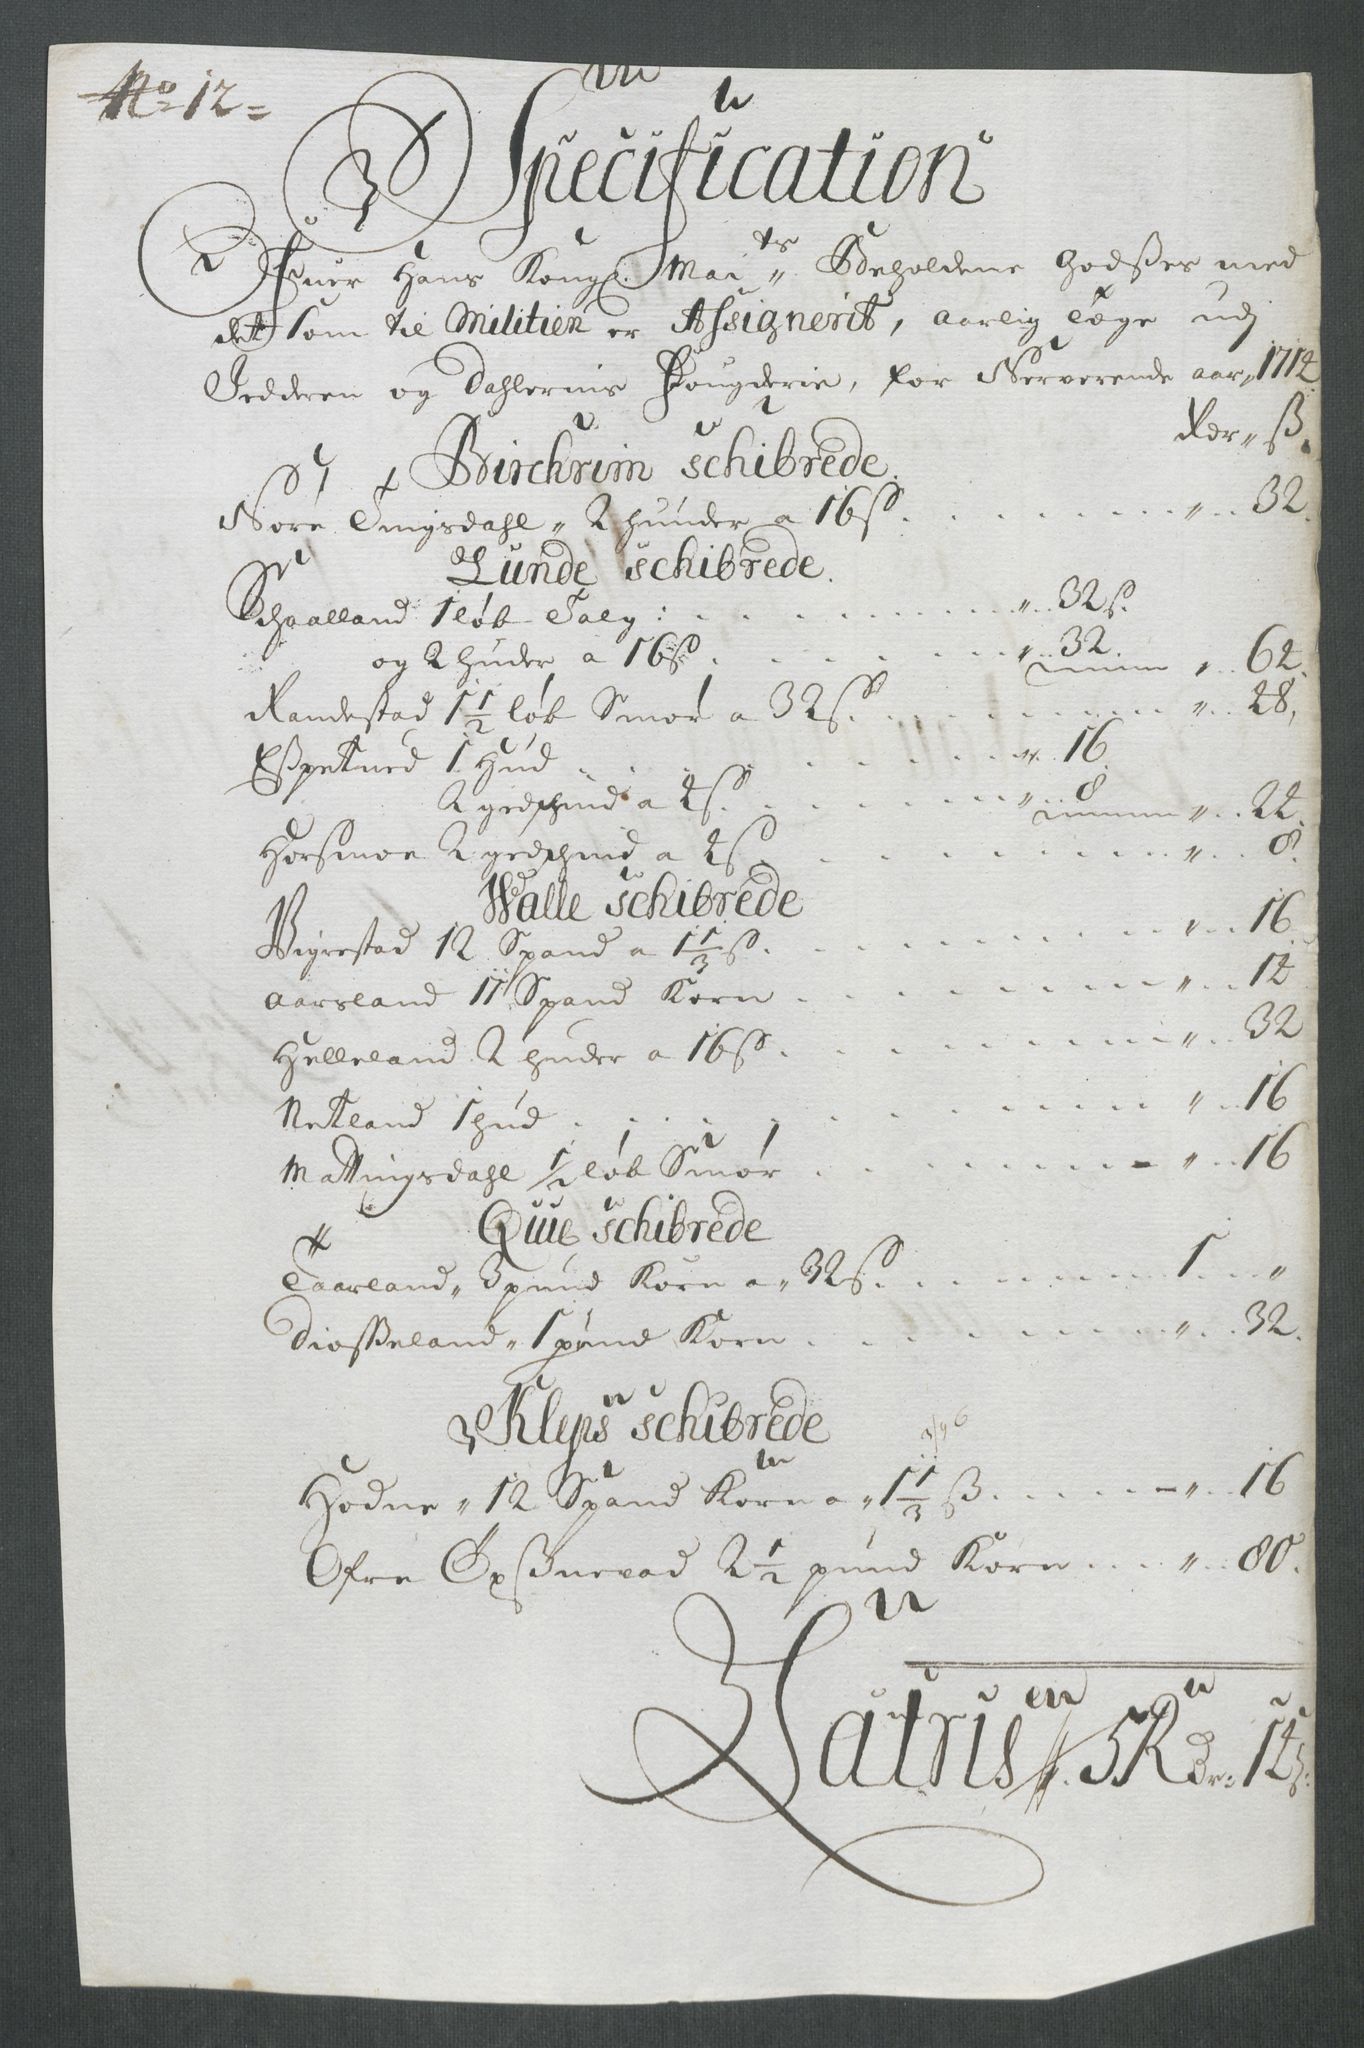 No 12
Specification
Ofuer Hans Kongl. Maits Beholdene Godsser med
det som til Militien er Assignerit, aarlig Tege udj
Jedderen og Dahlernis Fougderie, for Nerverende aar 1714
Rdr ß
Birchrim schibrede.
Nore Tingsdahl 2 huuder a 16ß . . 32.
Lunde schibrede.
Schaalland 1 løb Talg : . . 32ß.
og 2 huder a 16ß . . 32. . . 64.
Randestad 1 1/2 løb Smør a 32ß. . . 48,
Esspetued 1 Hud . . 16.
2 gedschind a 4ß. . . 8 . . 24.
Horsmoe 2 gedschind a 4ß . . 8.
Walle schibrede
Bigrestad 12 Spand a 1 1/3 ß. . . 16
Aarsland 11 Spand Korn . . 14
Helleland 2 huder a 16ß. . . 32
Netland 1 hud . . 16
Mattingsdahl 1/2 løb Smør . . 16
Quie schibrede
Taarland 3 pund Korn a 32ß. . . 1 . .
Diosseland 1 pund Korn . . 32.
Kleps schibrede
Hodne 12 Spand Korn a 1 1/3 ß . . 16
Ofre Øxssnevad 2 1/2 pund Korn . . 80.
Latris 5 Rdr: 14ß: